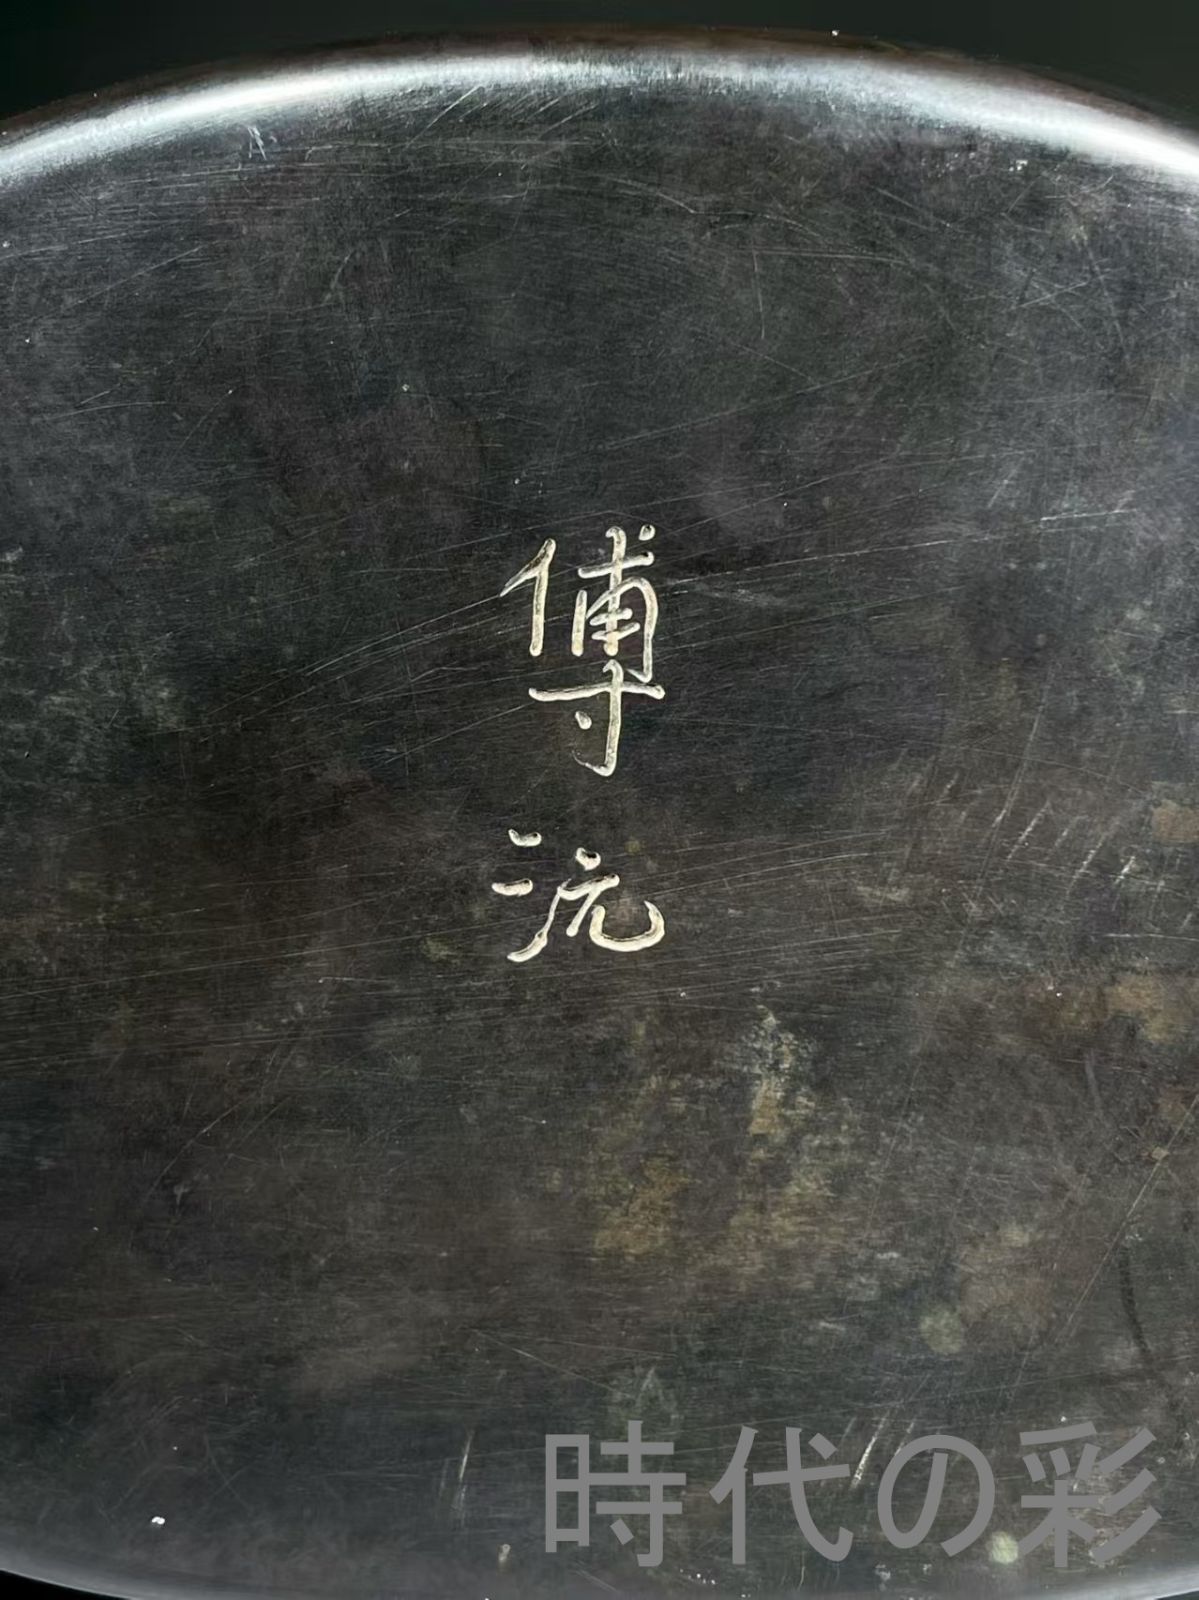 傅沆
時代の彩